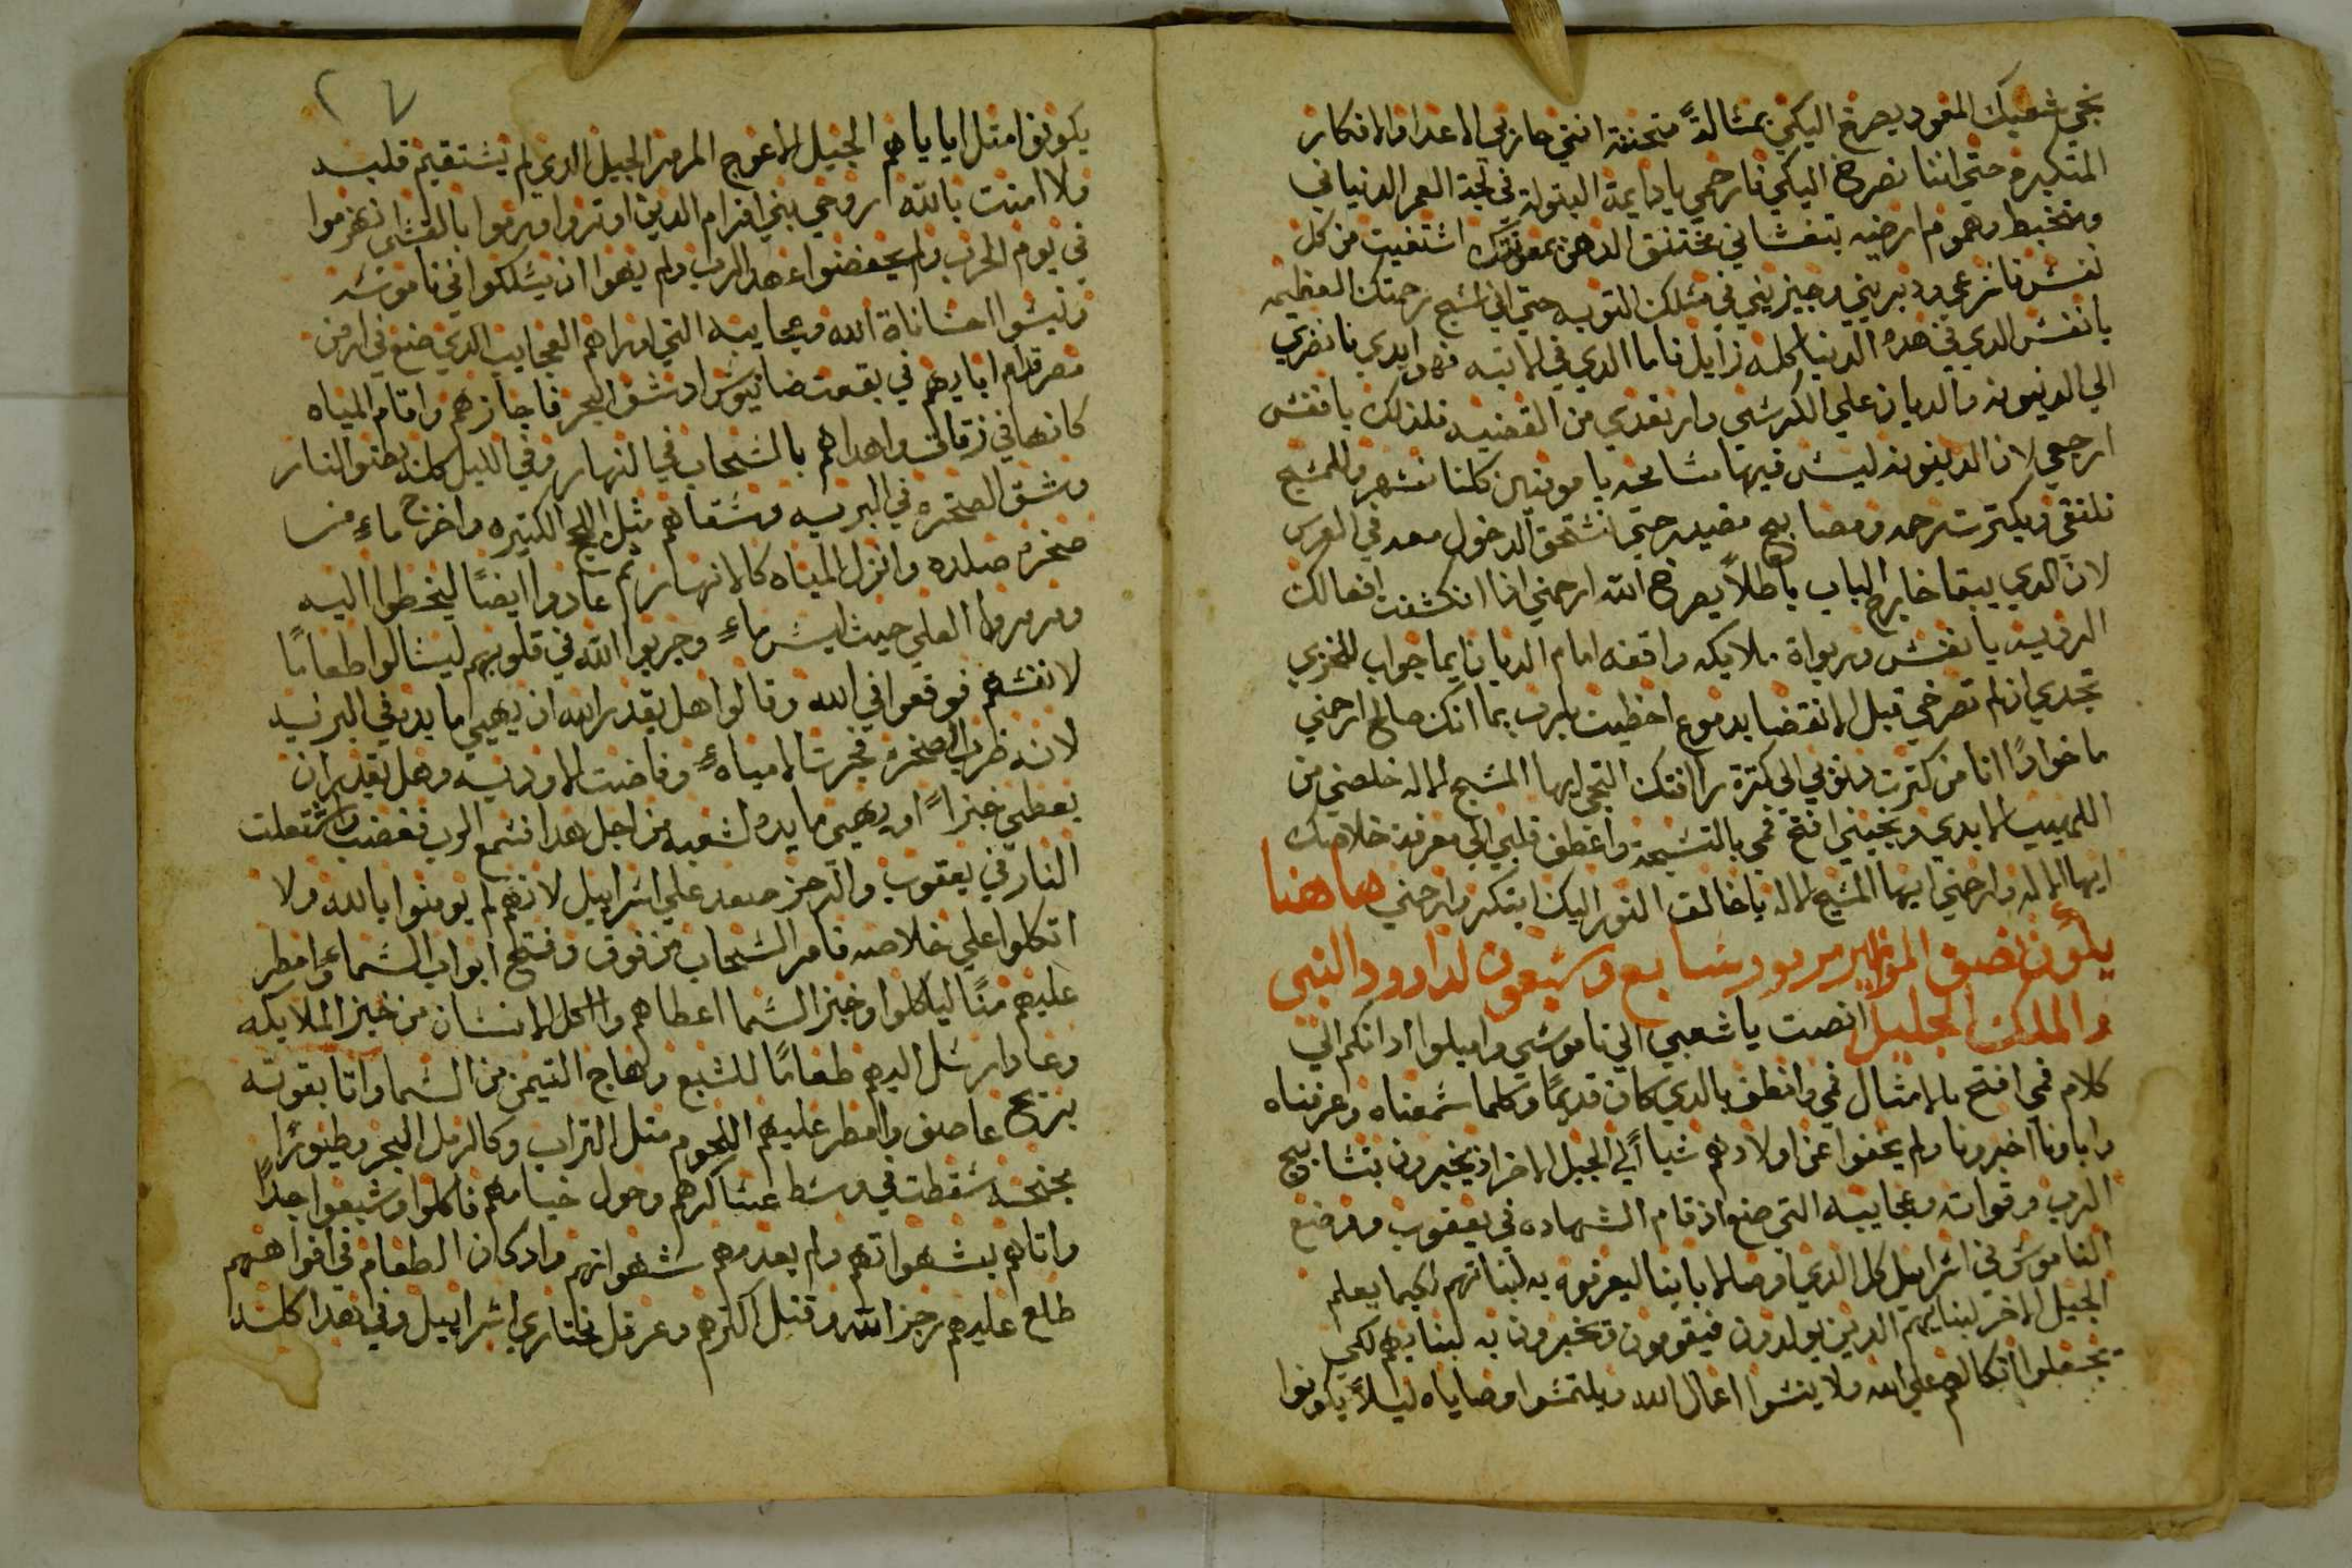 نجي شعبك المعود يصرخ اليكي بمسالة متحننة انتي حاربي الاعدا والافكار
المتكبره حتي اننا نصرخ اليكي فارحمي يا دايمة البتولية في لجة العمر الدنياني
وتتخبط وهموم ارضيه بتغشاني مختنق الدهن بمعونتك اشتفيت من كل
نفس فاترعي ودبريني وجيزيني في مسلك التوبه حتي اني اسبح رحمتك العظيمه
يا نفس الدي في هده الدنيا كله زايل فاما الدي في الاتيه فهو ابدي فانضري
الي الدينونه والديان علي الكرسي وارتعدي من القضيه فلدلك يا نفس
ارجعي لان الدينونه ليس فيها مسامحه يا مومنين كلنا نسهر وللمسيح
نلتقي وبكترت رحمه ومصابيح مضيه حتي نستحق الدخول معه في العرس
لان الدي يبقا خارج الباب باطلاً يصرخ الله ارحمني ادا انكشفت افعالك
الرديه يا نفس وربواة ملايكه واقفه امام الديان ايما جواب للخزي
تجدي ان لم تصرخي قبل الانقضا بدموع اخطيت يا رب بما انك صالح ارحمني
ماخوداً انا من كترت دنوبي الي كترة رافتك التجي ايها المسيح الاله خلصني من
اللهيب الابدي ونجيني افتح فمي بالتسبحة واعطف قلبي الي معرفة خلاصك
ايها الاله وارحمني ايها المسيح الاله يا خالق النور اليك ابتكر وارحمني هاهنا
يكون نصف المزامير مزمور سابع وسبعون لداوود النبي
والملك الجليل انصت يا شعبي الي ناموسي واميلوا ادانكم الي
كلام فمي افتح بالامثال فمي وانطق بالدي كان قديمًا وكلما سمعناه وعرفناه
واباونا اخبرونا ولم يخفوا عن اولادهم شياً الي الجيل الاخر اد يخبرون بتسابيح
الرب وقواته وعجايبه التي صنع اد قام الشهاده في يعقوب ووضع
الناموس في اسراييل كل الدي اوصا لاباينا ليعرفوه به لبناتهم لكيما يعلم
الجيل الاخر لبنايهم الدين يولدون فيقومون وتخبرون به لبنايهم لكي
تجعلوا اتكالهم علي الله ولا ينسوا اعمال الله ويلتمسوا وصاياه ليلاً يكونوا
يكونوا متل اباياهم الجيل الاعوج المرمر الجيل الدي لم يستقيم قلبه
ولا امنت بالله روحه بني افرام الدين اوتروا ورموا بالقسي انهزموا
في يوم الحرب ولم يحفضوا عهد الرب ولم يهوا ان يسلكوا في ناموسه
ونسوا احساناة الله وعجايبه التي اوراهم العجايب الدي صنع في ارض
مصر قدام ابايهم في بقعت ضانيوس اد شق البحر فاجازهم واقام المياه
كانها في زقاق واهداهم بالسحاب في النهار وفي الليل كله بضو النار
وشق الصخره في البريه وسقاهم متل اللجج الكتيره واخرج ماء من
صخره صلده وانزل المياه كالانهار تم عادوا ايضًا ليخطوا اليه
ومرمروا العلي حيث ليس ماء وجربوا الله في قلوبهم ليسالوا طعامًا
لانفسهم فوقعوا في الله وقالوا هل يقدر الله ان يهيي مايده في البريه
لانه ضرب الصخره فجرت الامياه وفاضت الاوديه وهل يقدر ان
يعطي خبزاً او يهيي مايده لشعبه من اجل هدا سمع الرب فغضب واشتعلت
النار في يعقوب والرجز صعد علي اسراييل لانهم لم يومنوا بالله ولا
اتكلوا علي خلاصه فامر السحاب من فوق وفتح ابواب السماء وامطر
عليهم منًا لياكلوا وخبز السما اعطاهم واكل الانسان من خبز الملايكه
وعاد ارسل اليهم طعامًا للشبع وهاج التيمن من السما واتا بقوته
بريح عاصف وامطر عليهم اللحوم متل التراب وكالرمل البحر وطيورًا
مجنحه سقطت في وسط عساكرهم وحول خيامهم فاكلوا وشبعوا جداً
واتاهم بشهواتهم ولم يعدمهم شهواتهم واد كان الطعام في افواههم
طلع عليهم رجز الله وقتل اكترهم وعرقل مختاري اسراييل وفي هدا كله